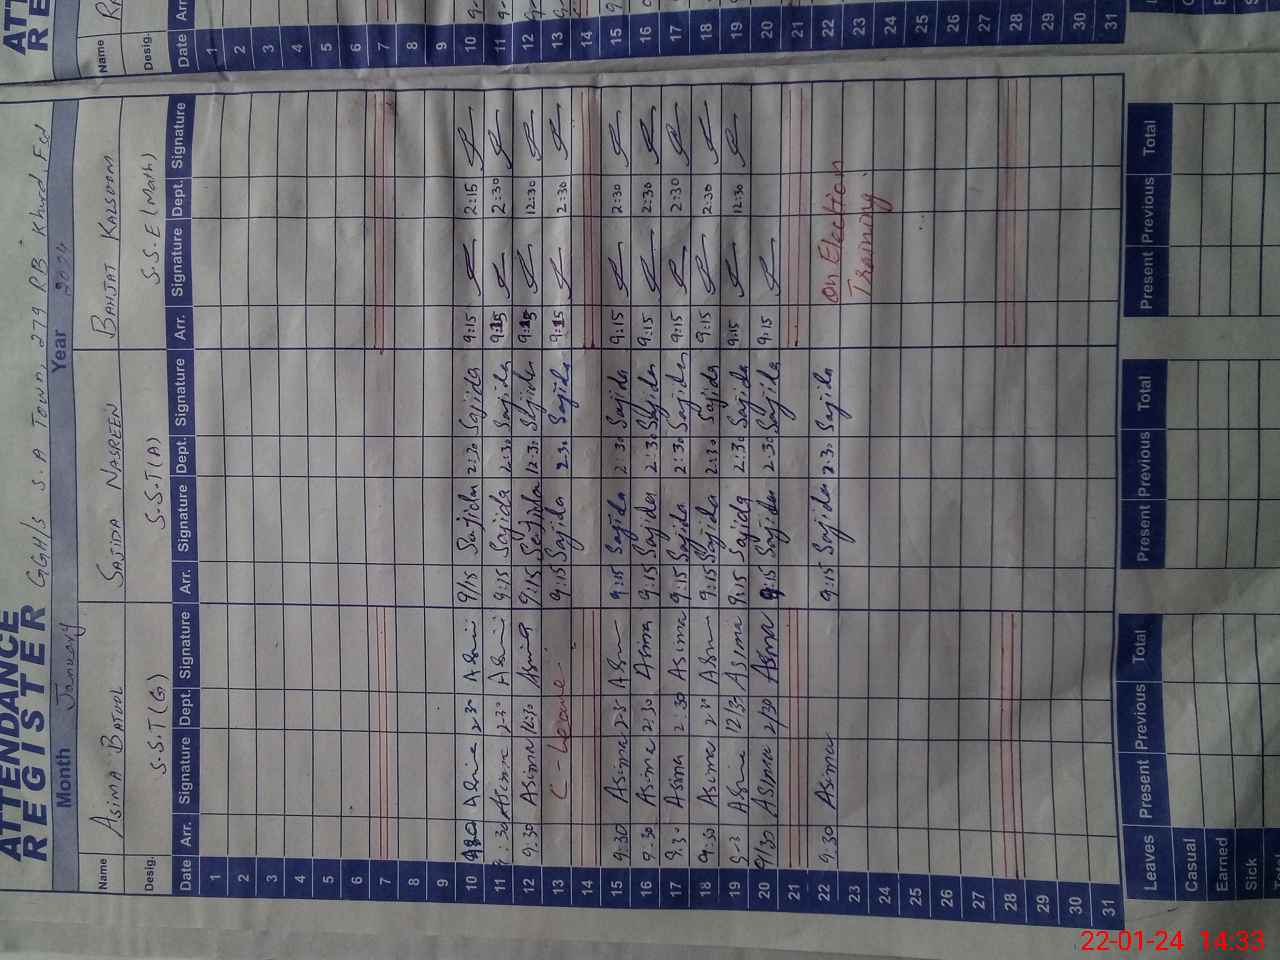 ATTENDANCE
REGISTER GGH/S S.A Town, 279 RB Khurd, Fsd
Month January Year 2024
Name ASIMA BATUOL SAJIDA NASREEN BAHJAT KALSOOM
Desig. S.S.T(G) S.S.T(A) S.S.E(Math)
Date Arr. Signature Dept. Signature Arr. Signature Dept. Signature Arr. Signature Dept. Signature
1
2
3
4
5
6
7
8
9
10 2:30 9/15 Sajida 2:30 Sajida 9:15 2:15
11 Asima 2:30 9:15 Sajida 12:30 Sajida 9:15 2:30
12 9:30 Asima 12:30 Asima 9:15 Sajida 12:30 Sajida 9:15 12:30
13 C-Leave 9:15 Sajida 2:30 Sajida 9:15 2:30
14
15 9:30 Asima 2:30 9:15 Sajida 2:30 Sajida 9:15 2:30
16 9:30 Asima 2:30 Asima 9:15 Sajida 2:30 Sajida 9:15 2:30
17 9:30 Asima 2:30 Asima 9:15 Sajida 2:30 Sajida 9:15 2:30
18 9:30 Asima 2:30 9:15 Sajida 2:30 Sajida 9:15 2:30
19 12/30 Asima 9:15 Sajida 2:30 Sajida 9:15 12:30
20 9/30 Asima 2/30 Asima 9:15 Sajida 2:30 Sajida 9:15
21
22 9:30 Asima 9:15 Sajida 2:30 Sajida On Election
23 Training.
24
25
26
27
28
29
30
31
Leaves Present Previous Total Present Previous Total Present Previous Total
Casual
Earned
Sick
Name
Desig.
Date Arr
1
2
3
4
5
6
7
8
9
10
11
12
13
14
15
16
17
18
19
20
21
22
23
24
25
26
27
28
29
30
31
22-01-24 14:33